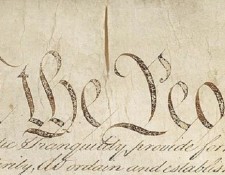 The Peo
tic Tranquility, provide for
erity, do ordain and establis